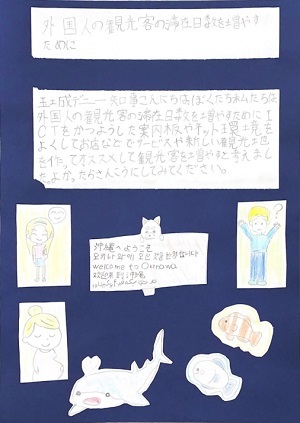 外国人の観光客の滞在日数を増やす
ために
玉城デニー知事こんにちはぼくたちわたしたちは
外国人の観光客の滞在日数を増やすためにI
CTをかつようした案内板やネット環境を
よくしてお店などでサービスや新しい観光地
を作ってオススメして観光客を増やすと考えまし
たよかったらさんこうにしてみてください。
沖縄へようこそ
welcome to Okinawa
欢迎来到沖縄
?